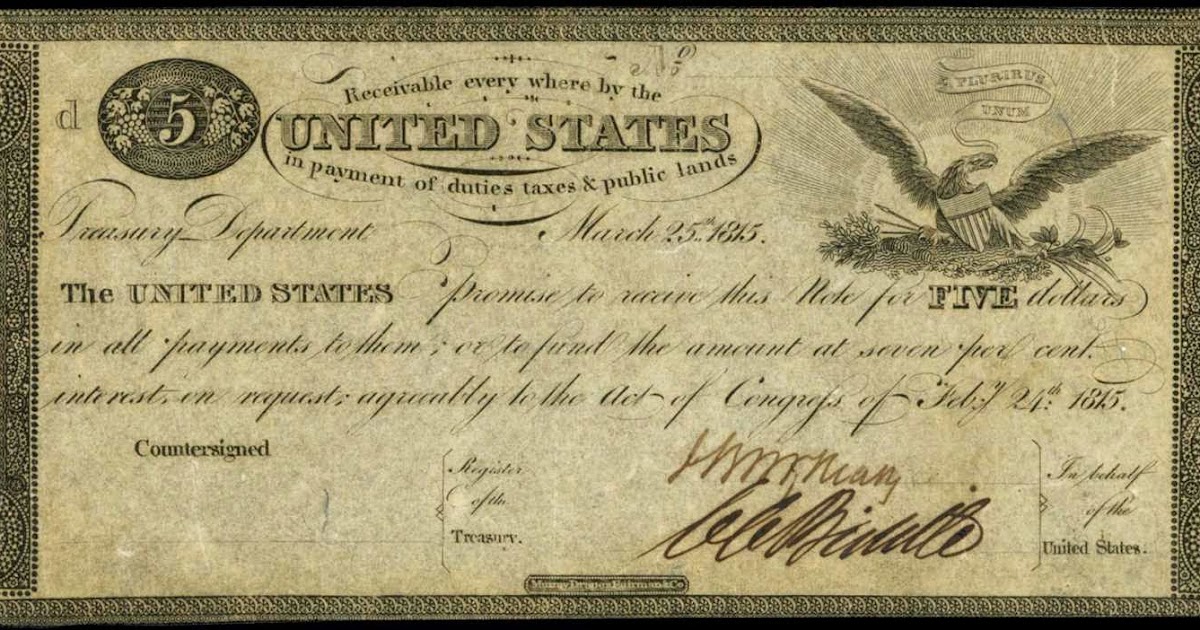 d 5
Receivable every where by the
UNITED STATES
in payment of duties taxes & public lands
E PLURIBUS
UNUM
Treasury Department March 25th 1815.
The UNITED STATES Promise to receive this Note for FIVE dollars
in all payments to them; or to fund the amount at seven per cent.
interest, on request; agreeably to the Act of Congress of Feby. 24th: 1815.
Countersigned
Register
of the
Treasury.
C C Biddle
In behalf
of the
United States.
Murray Draper Fairman & Co